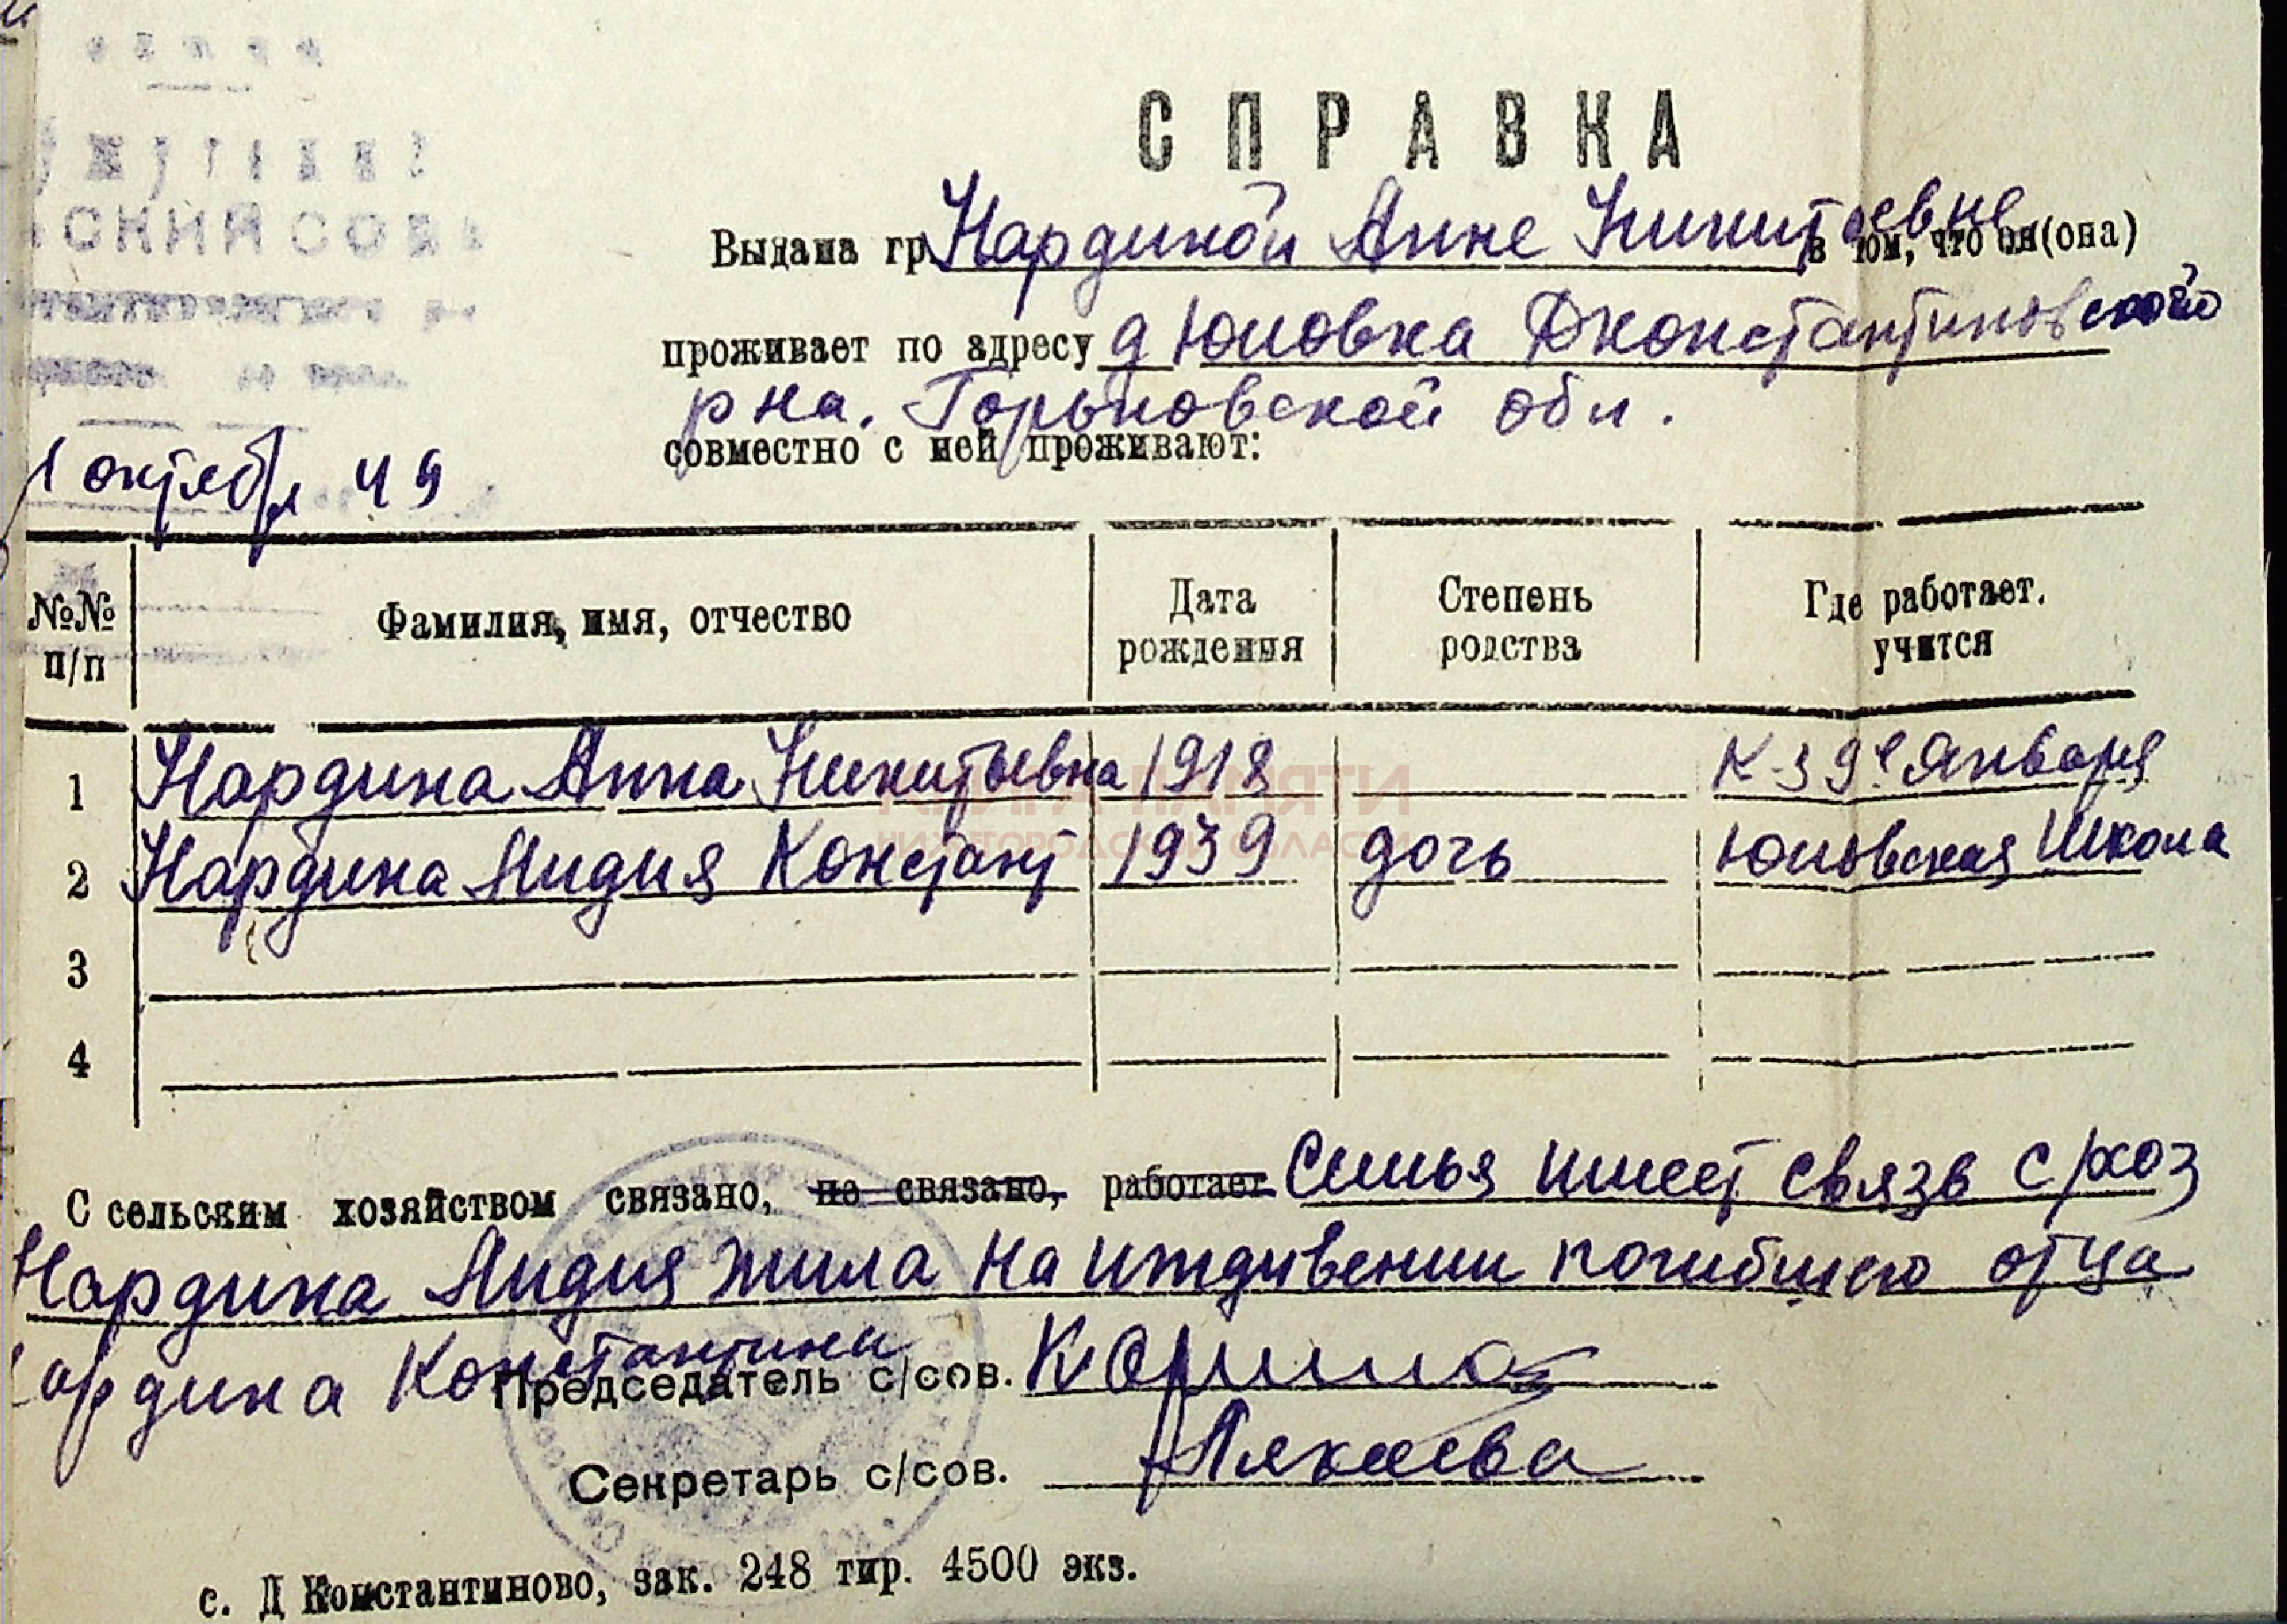 СКИЙ СОВ
1 октября 49
СПРАВКА
Выдана гр. Нардиной Анне Никитьевне в том, что он(она)
проживает по адресу д Юловка Дконстантиновского
р на. Горьковской обл.
совместно с ней проживают:
№№ п/п Фамилия, имя, отчество Дата рождения Степень родства Где работает. учится
1 Нардина Анна Никитьевна 1918 К-з 9е Января
2 Нардина Лидия Констант 1939 дочь Юловская Школа
3
4
С сельским хозяйством связано, не связано, работает Семья имеет связь с/хоз
Нардина Лидия жила на иждивении погибшего отца
ардина Константина
Председатель с/сов.
Секретарь с/сов.
с. Д Константиново, зак. 248 тир. 4500 экз.
КНИГА ПАМЯТИ
НИЖЕГОРОДСКОЙ ОБЛАСТИ